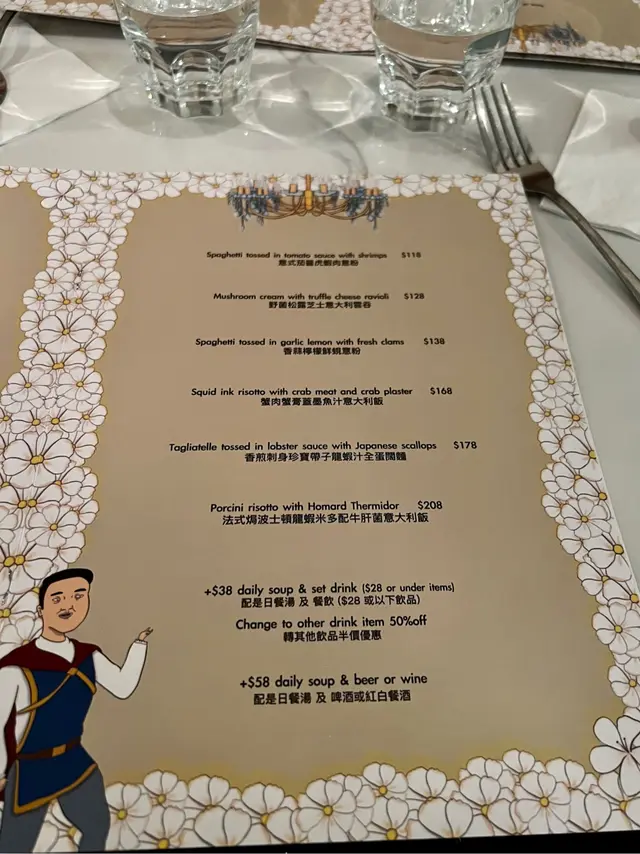 Spaghetti tossed in tomato sauce with shrimps $118
意式茄醬虎蝦肉意粉
Mushroom cream with truffle cheese ravioli $128
野菌松露芝士意大利雲吞
Spaghetti tossed in garlic lemon with fresh clams $138
香蒜檸檬鮮蜆意粉
Squid ink risotto with crab meat and crab plaster $168
蟹肉蟹膏蓋墨魚汁意大利飯
Tagliatelle tossed in lobster sauce with Japanese scallops $178
香煎刺身珍寶帶子龍蝦汁全蛋闊麵
Porcini risotto with Homard Thermidor $208
法式焗波士頓龍蝦米多配牛肝菌意大利飯
+$38 daily soup & set drink ($28 or under items)
配是日餐湯 及 餐飲 ($28 或以下飲品)
Change to other drink item 50%off
轉其他飲品半價優惠
+$58 daily soup & beer or wine
配是日餐湯 及 啤酒或紅白餐酒